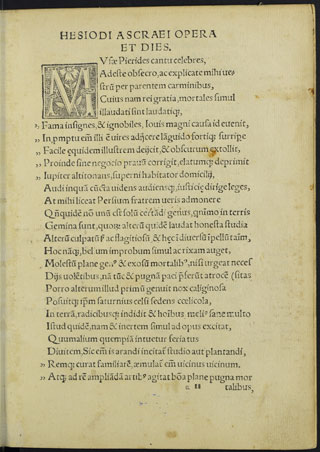 HESIODI ASCRAEI OPERA
ET DIES.
MVsæ Pierides cantu celebres,
Adeste obsecro, ac explicate mihi ue-
strũ per parentem carminibus,
Cuius nam rei gratia, mortales simul
illaudati sint laudatiq;
„ Fama insignes, & ignobiles, Iouis magni causa id euenit,
„ In promptu em illi ẽ uires adijcere lãguido fortiq; surrige
„ Facile equidem illustrem deijcit, & obscurum extollit,
„ Proinde sine negocio prauũ corrigit, elatumq; deprimit
„ Iupiter altitonans, superni habitator domicilij,
Audi inquã cũcta uidens audiensq;, iusticię dirige leges,
At mihi liceat Persium fratrem ueris admonere
Qñquidẽ nõ unũ est solũ certãdi genus, quinimo in terris
Gemina sunt, quoꝝ alterũ quidẽ laudat honesta studia
Alterũ culpatur ac flagitiosũ & hęc ĩ diuersũ ĩpellũt aĩm,
Hoc nãq;, bellum improbum simul ac rixam auget,
Molestũ plane & exosũ mortalibꝰ, nisi urgeat necef
Dijs uolẽtibus, nã tũc & pugnã paci ꝑferũt atrocẽ (sitas
Porro alterum illud primũ genuit nox caliginosa
Posuitq; ipm saturnius celsi sedens cœlicola,
In terrã, radicibusq; indidit & hoĩbus melisane multo
Istud quidẽ, nam & inertem simul ad opus excitat,
Quumalium quempiã intuetur feriatus
Diuitem, Sic em is arandi incitat studio aut plantandi,
„ Remq; curat familiarẽ, æmulat em uicinus uicinum,
„ Atq; ad rẽ ampliãdã artibꝰ agitat bõa plane pugna mor
a ii talibus,